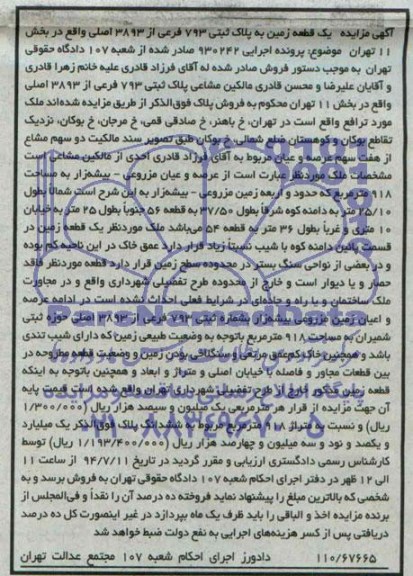 آگهی مزایده یک قطعه زمین به پلاک ثبتی ۷۹۳ فرعی از ۳۸۹۳ اصلی واقع در بخش
۱۱ تهران موضوع: پرونده اجرایی ۹۳۰۲۴۲ صادر شده از شعبه ۱۰۷ دادگاه حقوقی
تهران به موجب دستور فروش صادر شده له آقای فرزاد قادری علیه خانم زهرا قادری
و آقایان علیرضا و محسن قادری مالکین مشاعی پلاک ثبتی ۷۹۳ فرعی از ۳۸۹۳ اصلی
واقع در بخش ۱۱ تهران محکوم به فروش پلاک فوق‌الذکر از طریق مزایده شده‌اند ملک
مورد ترافع واقع است در تهران، خ باهنر، خ صادقی قمی، خ مرجان، خ بوکان، نزدیک
تقاطع بوکان و کوهستان ضلع شمالی خ بوکان طبق تصویر سند مالکیت دو سهم مشاع
از هفت سهم عرصه و عیان مربوط به آقای فرزاد قادری احدی از مالکین مشاعی است
مشخصات ملک موردنظر عبارت است از عرصه و عیان مزروعی - بیشه‌زار به مساحت
۹۱۸ مترمربع که حدود و اربعه زمین مزروعی - بیشه‌زار به این شرح است شمالا بطول
۲۵/۱۰ متر به دامنه کوه شرقا بطول ۳۷/۵۰ به قطعه ۵۶ جنوبا بطول ۲۵ متر به خیابان
۱۰ متری و غربا بطول ۳۶ متر به قطعه ۵۴ می‌باشد ملک موردنظر یک قطعه زمین در
قسمت پائین دامنه کوه با شیب نسبتا زیاد قرار دارد عمق خاک در این ناحیه کم بوده
و در بعضی از نواحی سنگ بستر در محدوده سطح زمین قرار دارد قطعه موردنظر فاقد
حصار و یا دیوار است و خارج از محدوده طرح تفصیلی شهرداری واقع و در مجاورت
ملک ساختمان و یا راه و جاده‌ای در شرایط فعلی احداث نشده است در ادامه عرصه
و اعیان زمین مزروعی بیشه‌زار بشماره ثبتی ۷۹۳ فرعی از ۳۸۹۳ اصلی حوزه ثبتی
شمیران به مساحت ۹۱۸ مترمربع باتوجه به وضعیت طبیعی زمین که دارای شیب تندی
باشد و همچنین خاک کم‌عمق مرتعی و سنگلاخی بودن زمین و وضعیت قطعه مطروحه در
بین قطعات مجاور و فاصله با خیابان اصلی و متراژ و ابعاد و همچنین باتوجه به اینکه
قطعه زمین مذکور خارج از طرح تفصیلی شهرداری تهران واقع شده است قیمت پایه
آن جهت مزایده از قرار هر مترمربعی یک میلیون و سیصد هزار ریال (۱/۳۰۰/۰۰۰
ریال) و نسبت به متراژ ۹۱۸ مترمربع مربوط به ششدانگ پلاک فوق‌الذکر یک میلیارد
و یکصد و نود و سه میلیون و چهارصد هزار ریال (۱/۱۹۳/۴۰۰/۰۰۰ ریال) توسط
کارشناس رسمی دادگستری ارزیابی و مقرر گردید در تاریخ ۹۴/۷/۱۱ از ساعت ۱۱
الی ۱۲ ظهر در دفتر اجرای احکام شعبه ۱۰۷ دادگاه حقوقی تهران به فروش برسد و به
شخصی که بالاترین مبلغ را پیشنهاد نماید فروخته ده درصد آن را نقدا و فی‌المجلس از
برنده مزایده اخذ و الباقی را باید ظرف یک ماه بپردازد در غیر اینصورت کل ده درصد
دریافتی پس از کسر هزینه‌های اجرایی به نفع دولت ضبط خواهد شد
۱۱۰/۶۷۶۶۵ دادورز اجرای احکام شعبه ۱۰۷ مجتمع عدالت تهران
ParsNamadData